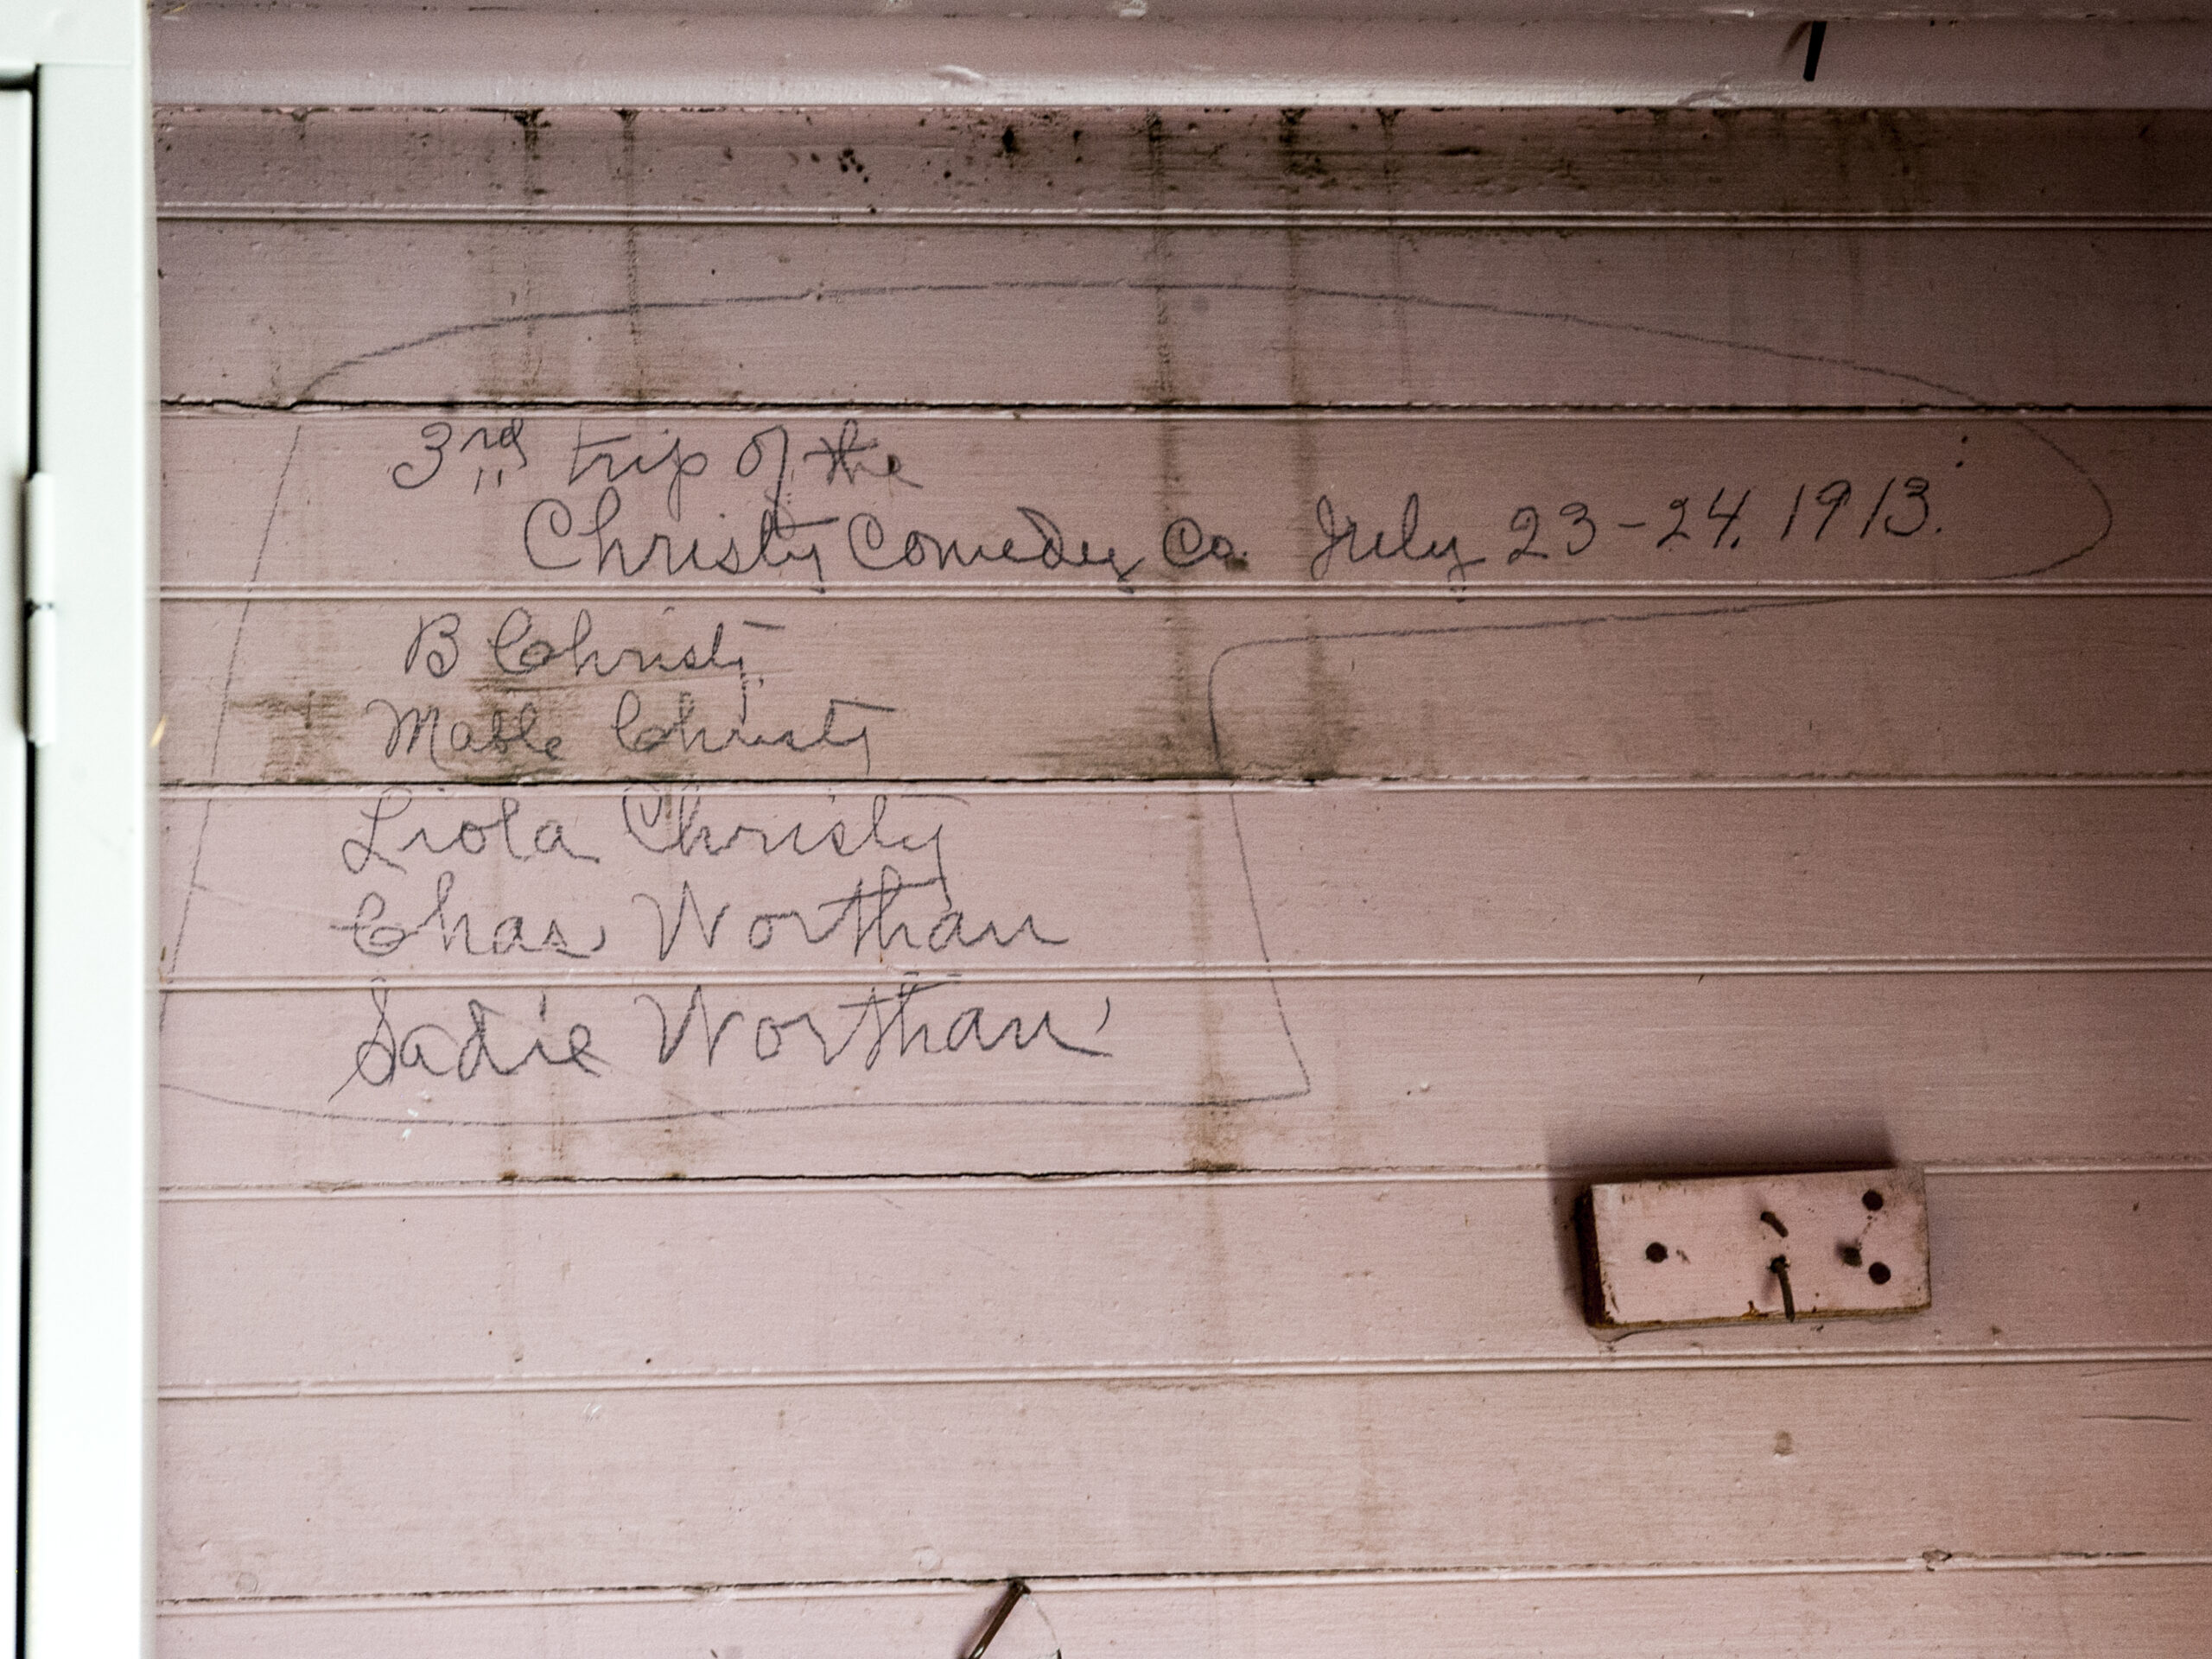 3rd trip of the
Christy Comedy Co. July 23-24. 1913.
B Christy
Mable Christy
Liola Christy
Chas Worthan
Sadie Worthan